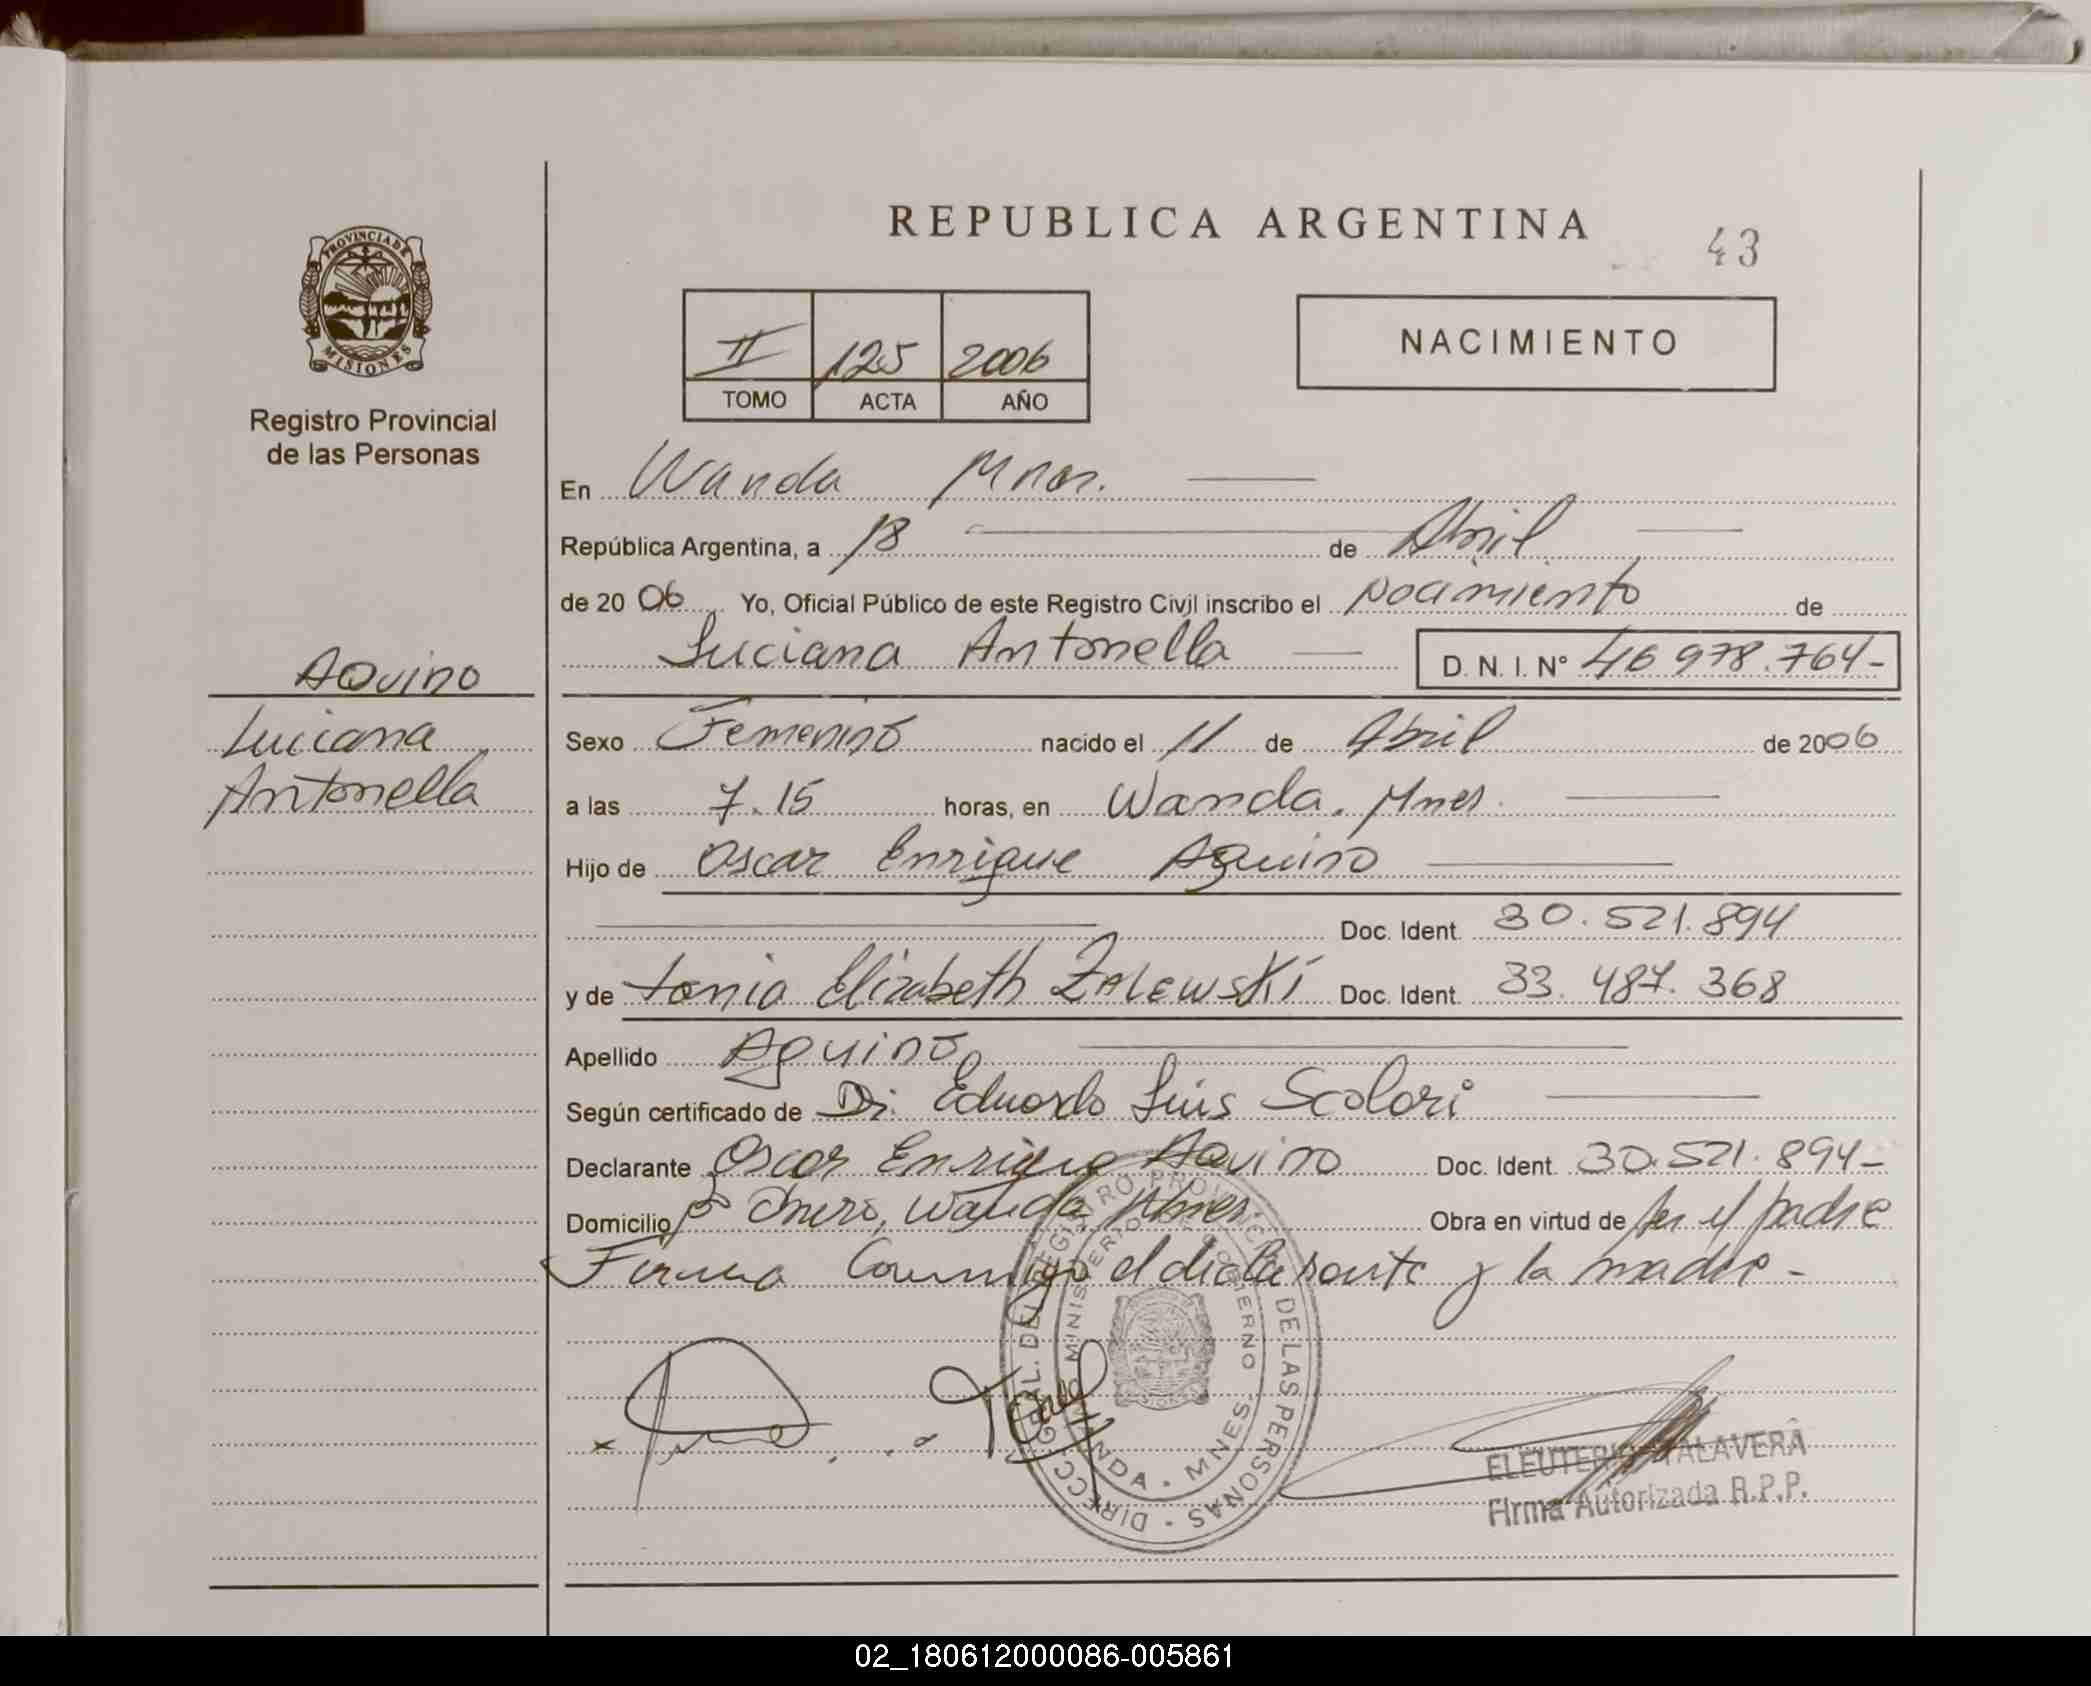 REPUBLICA ARGENTINA
43
PROVINCIA DE
MISIONES
Registro Provincial
de las Personas
II 125 2006
TOMO ACTA AÑO
NACIMIENTO
En Wanda Mnes.
República Argentina, a 18 de Abril
de 2006 Yo, Oficial Público de este Registro Civil inscribo el nacimiento de
Luciana Antonella D. N. I. N° 46 978.764-
Aquino
Luciana
Antonella
Sexo Femenino nacido el 11 de Abril de 2006
a las 7.15 horas, en Wanda, Mnes.
Hijo de Oscar Enrique Aquino
Doc. Ident. 30.521.894
y de Tania Elizabeth ZALEWSKI Doc. Ident. 33.487.368
Apellido Aquino
Según certificado de Dr. Eduardo Luis Scolari
Declarante Oscar Enrique Aquino Doc. Ident. 30.521.894-
Domicilio Wanda Mnes. Obra en virtud de ser el padre
Firma Conmigo el declarante y la madre-
DIRECC. GRAL. DEL REGISTRO PROVINCIAL DE LAS PERSONAS
MINISTERIO DE GOBIERNO
WANDA - MNES.
ELEUTERIO TALAVERA
Firma Autorizada R.P.P.
02_180612000086-005861